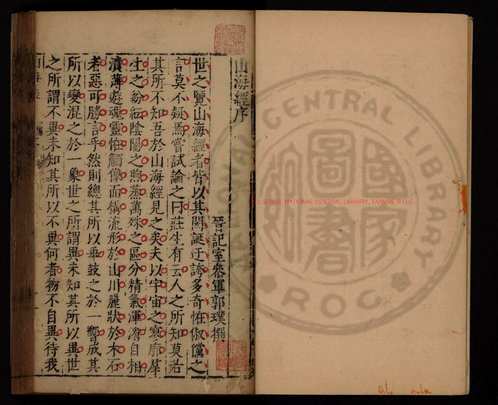 山海經序
晉記室參軍郭璞撰
世之覽山海經者皆以其閎誕迂誇多奇怪俶儻之
言莫不疑焉嘗試論之曰莊生有云人之所知莫若
其所不知吾於山海經見之矣夫以宇宙之寥廓羣
生之紛紜陰陽之煦蒸萬殊之區分精氣渾淆自相
濆薄遊魂靈怪觸像而構流形於山川麗狀於木石
者惡可勝言乎然則總其所以乖鼓之於一響成其
所以變混之於一象世之所謂異未知其所以異世
之所謂不異未知其所以不異何者物不自異待我
CENTRAL LIBRARY
ROC
國家圖書館